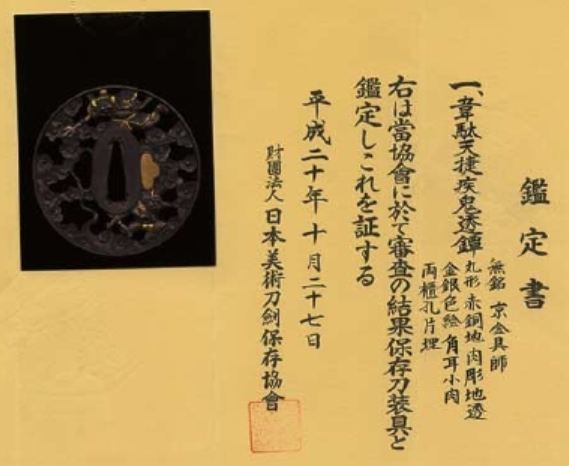 鑑定書
一、韋駄天捷疾鬼透鐔
無銘 京金具師
丸形 赤銅地 肉彫地透
金銀色絵 角耳小肉
両櫃孔片埋
右は當協會に於て審査の結果保存刀装具と
鑑定しこれを証する
平成二十年十月二十七日
財團法人 日本美術刀剣保存協會